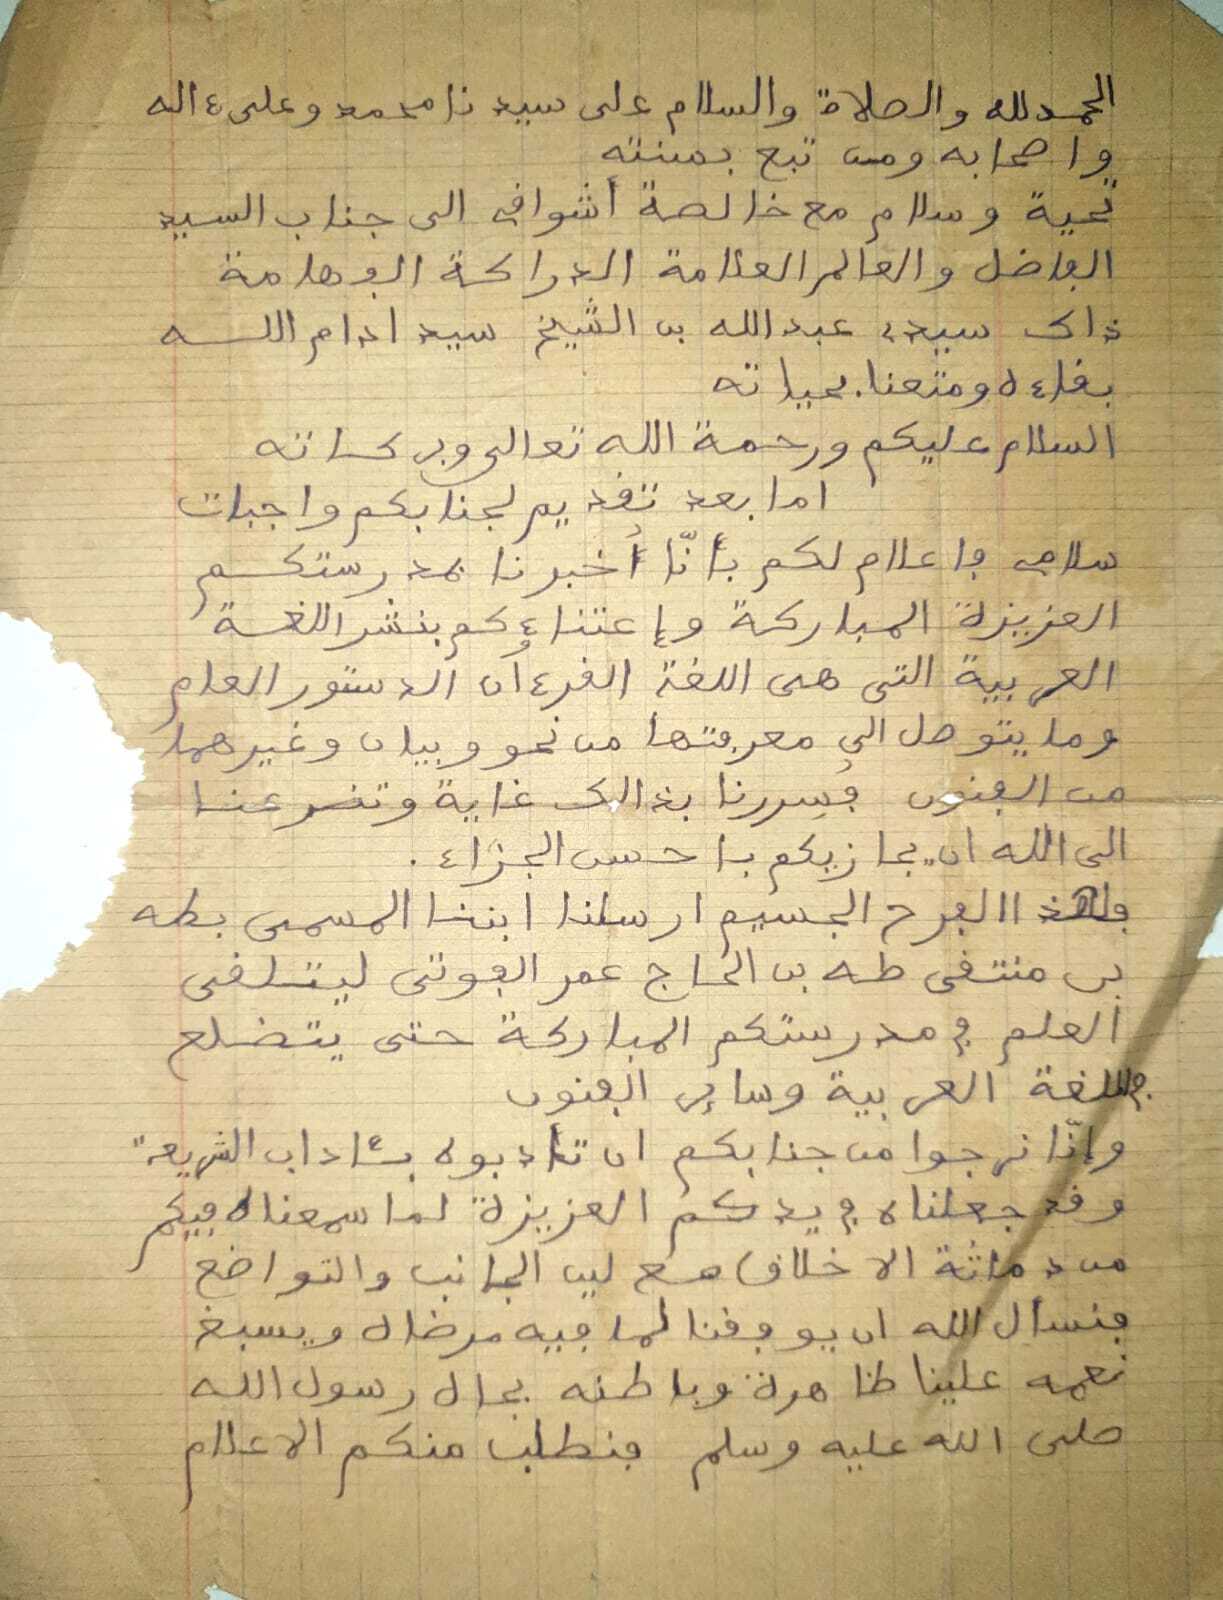 الحمد لله والصلاة والسلام على سيدنا محمد وعلى ءاله
واصحابه ومن تبع بسنته
تحية وسلام مع خالصة أشواقي الى جناب السيد
الفاضل والعالم العلامة الدراكة الفهامة
ذاك سيدي عبد الله بن الشيخ سيد ادام اللـــه
بقاءه ومتعنا بحياته
السلام عليكم ورحمة الله تعالى وبركاته
اما بعد تقديم لجنابكم واجبات
سلامي فاعلام لكم بأنّا أُخبرنا بمدرستكـــم
العزيزة المباركة وإعتناءكم بنشر اللغـــة
العربية التي هي اللغة القرءان الدستور العام
وما يتوصل الى معرفتها من نحو وبيان وغيرهما
من الفنون فسررنا بذالك غاية وتضرعنـــا
الى الله ان يجازيكم باحسن الجزاء .
الفرح الجسيم ارسلنا ابننا المسمى بطه
بن منتقى طه بن الحاج عمر الفوتي ليتلقى
العلم في مدرستكم المباركة حتى يتضلع
في اللغة العربية وسائر الفنون
وإنّا نرجوا من جنابكم ان تأدبوه بـئاداب الشريعة
وقد جعلناه في يدكم العزيزة لما سمعناه فيكم
من دماثة الاخلاق مع لين الجانب والتواضع
فنسأل الله ان يوفقنا لما فيه مرضاه ويسبغ
نعمه علينا ظاهرة وباطنه بجاه رسول الله
صلى الله عليه وسلم فنطلب منكم الاعلام